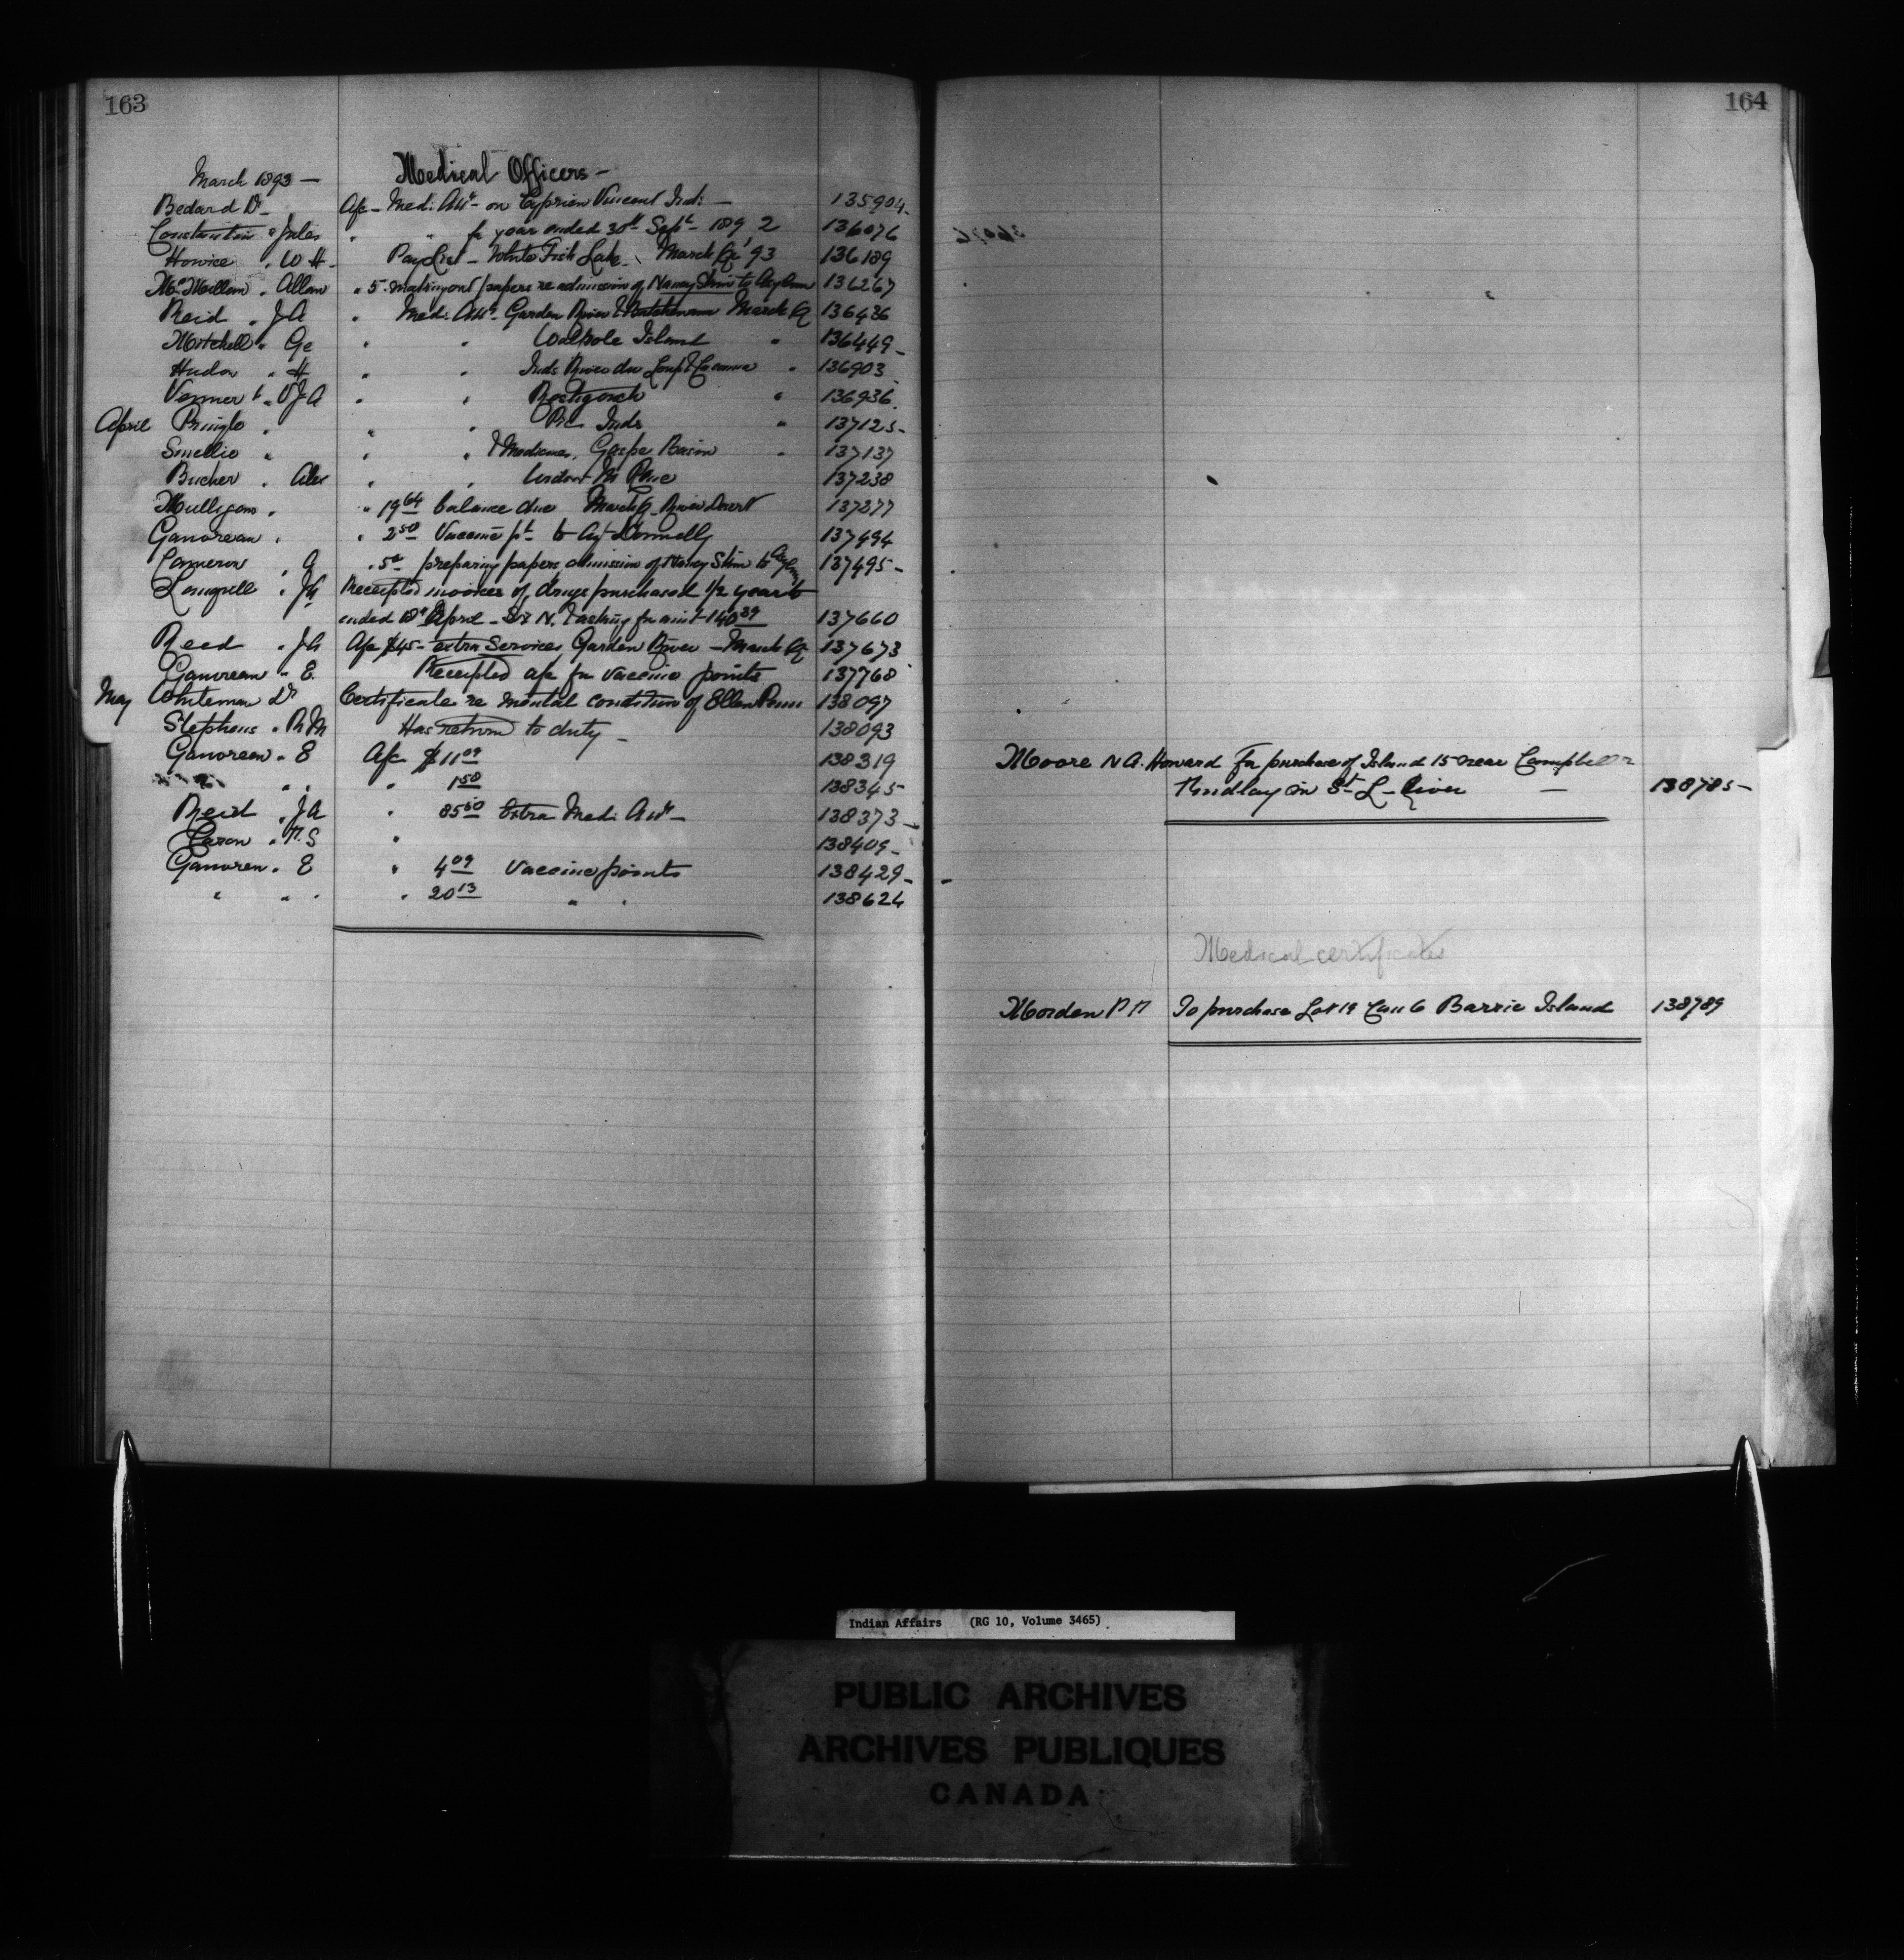 163
March 1893 —
Medical Officers —
Bedard Dr - A/c - Med: Att - on Cyprien Vincent Ind: — 135904 -
Constantin " Jules " " for year ended 30th Sept - 1892 136076
Howice " W H - Pay List - White Fish Lake - March Qr '93 136189
McMillan " Allan " 5 - making out papers re admission of Nancy to Asylum 136267
Reid " J A " Med: Att - Garden River & Batchewana March Q 136436
Mitchell " Ge " " Walpole Island " 136449 -
Hudon " H " " Inds River du Loup & Cacouna " 136903
Venner " V J A " " Restigouch " 136936
April Pringle " " " Pic Inds " 137125 -
Smellie " " " & Medicines, Gaspe Basin " 137137
Bucher " Alex " " 137238
Mulligan " " 19 64 balance due March Q River Desert 137277
Ganvreau " " 2 50 Vaccine pt - to Agt Donnelly 137494
Cameron " A " 5 00 preparing papers admission of Nancy to Asylum 137495 -
Longwell " J H Receipted invoices of drugs purchased 1/2 year
ended April - Six N. for amt 140 39 137660
Reed " J A A/c $45 - extra Services Garden River - March Q 137673
Ganvreau " E. Receipted a/c for vaccine points 137768
May Whiteman Dr Certificate re mental condition of Ellen 138097
Stephens " R M Has return to duty - 138093
Ganvreau " E A/c $11 09 138319
" " " " 1 50 138345
Reid " J A " 85 50 Extra Med: Att - 138373 -
Caron " T. S " 138409 -
Ganvren " E " 4 09 Vaccine points 138429 -
" " " " 20 13 " " 138624
164
Moore N A. Howard For purchase of Island 15 near Campbell
Findlay in St - L - River — 138785 -
Medical certificates
Morden P To purchase Lot 19 Con 6 Barrie Island 138789
Indian Affairs (RG 10, Volume 3465)
PUBLIC ARCHIVES
ARCHIVES PUBLIQUES
CANADA